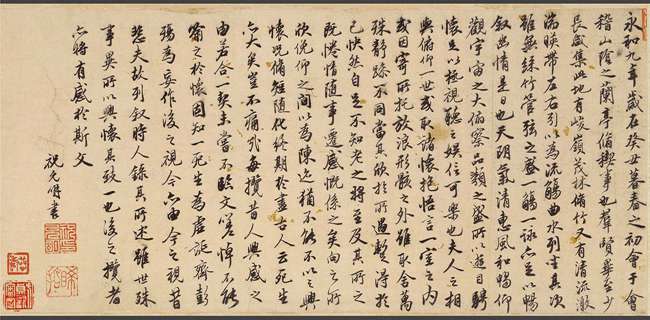 永和九年歲在癸丑暮春之初會于會
稽山陰之蘭亭脩禊事也羣賢畢至少
長咸集此地有峻嶺茂林脩竹又有清流激
湍暎帶左右引以為流觴曲水列坐其次
雖無絲竹管弦之盛一觴一詠亦足以暢
叙幽情是日也天朗氣清惠風和暢仰
觀宇宙之大俯察品類之盛所以遊目騁
懷足以極視聽之娛信可樂也夫人之相
與俯仰一世或取諸懷抱悟言一室之內
或因寄所托放浪形骸之外雖取舍萬
殊靜躁不同當其欣於所遇暫得於
己怏然自足不知老之將至及其所之
既惓情隨事遷感慨係之矣向之所
欣俛仰之間以為陳迹猶不能不以之興
懷況脩短隨化終期於盡古人云死生
亦大矣豈不痛哉每攬昔人興感之
由若合一契未嘗不臨文嗟悼不能
喻之於懷固知一死生為虛誕齊彭
殤為妄作後之視今亦由今之視昔
悲夫故列叙時人錄其所述雖世殊
事異所以興懷其致一也後之攬者
亦將有感於斯文
祝允明書